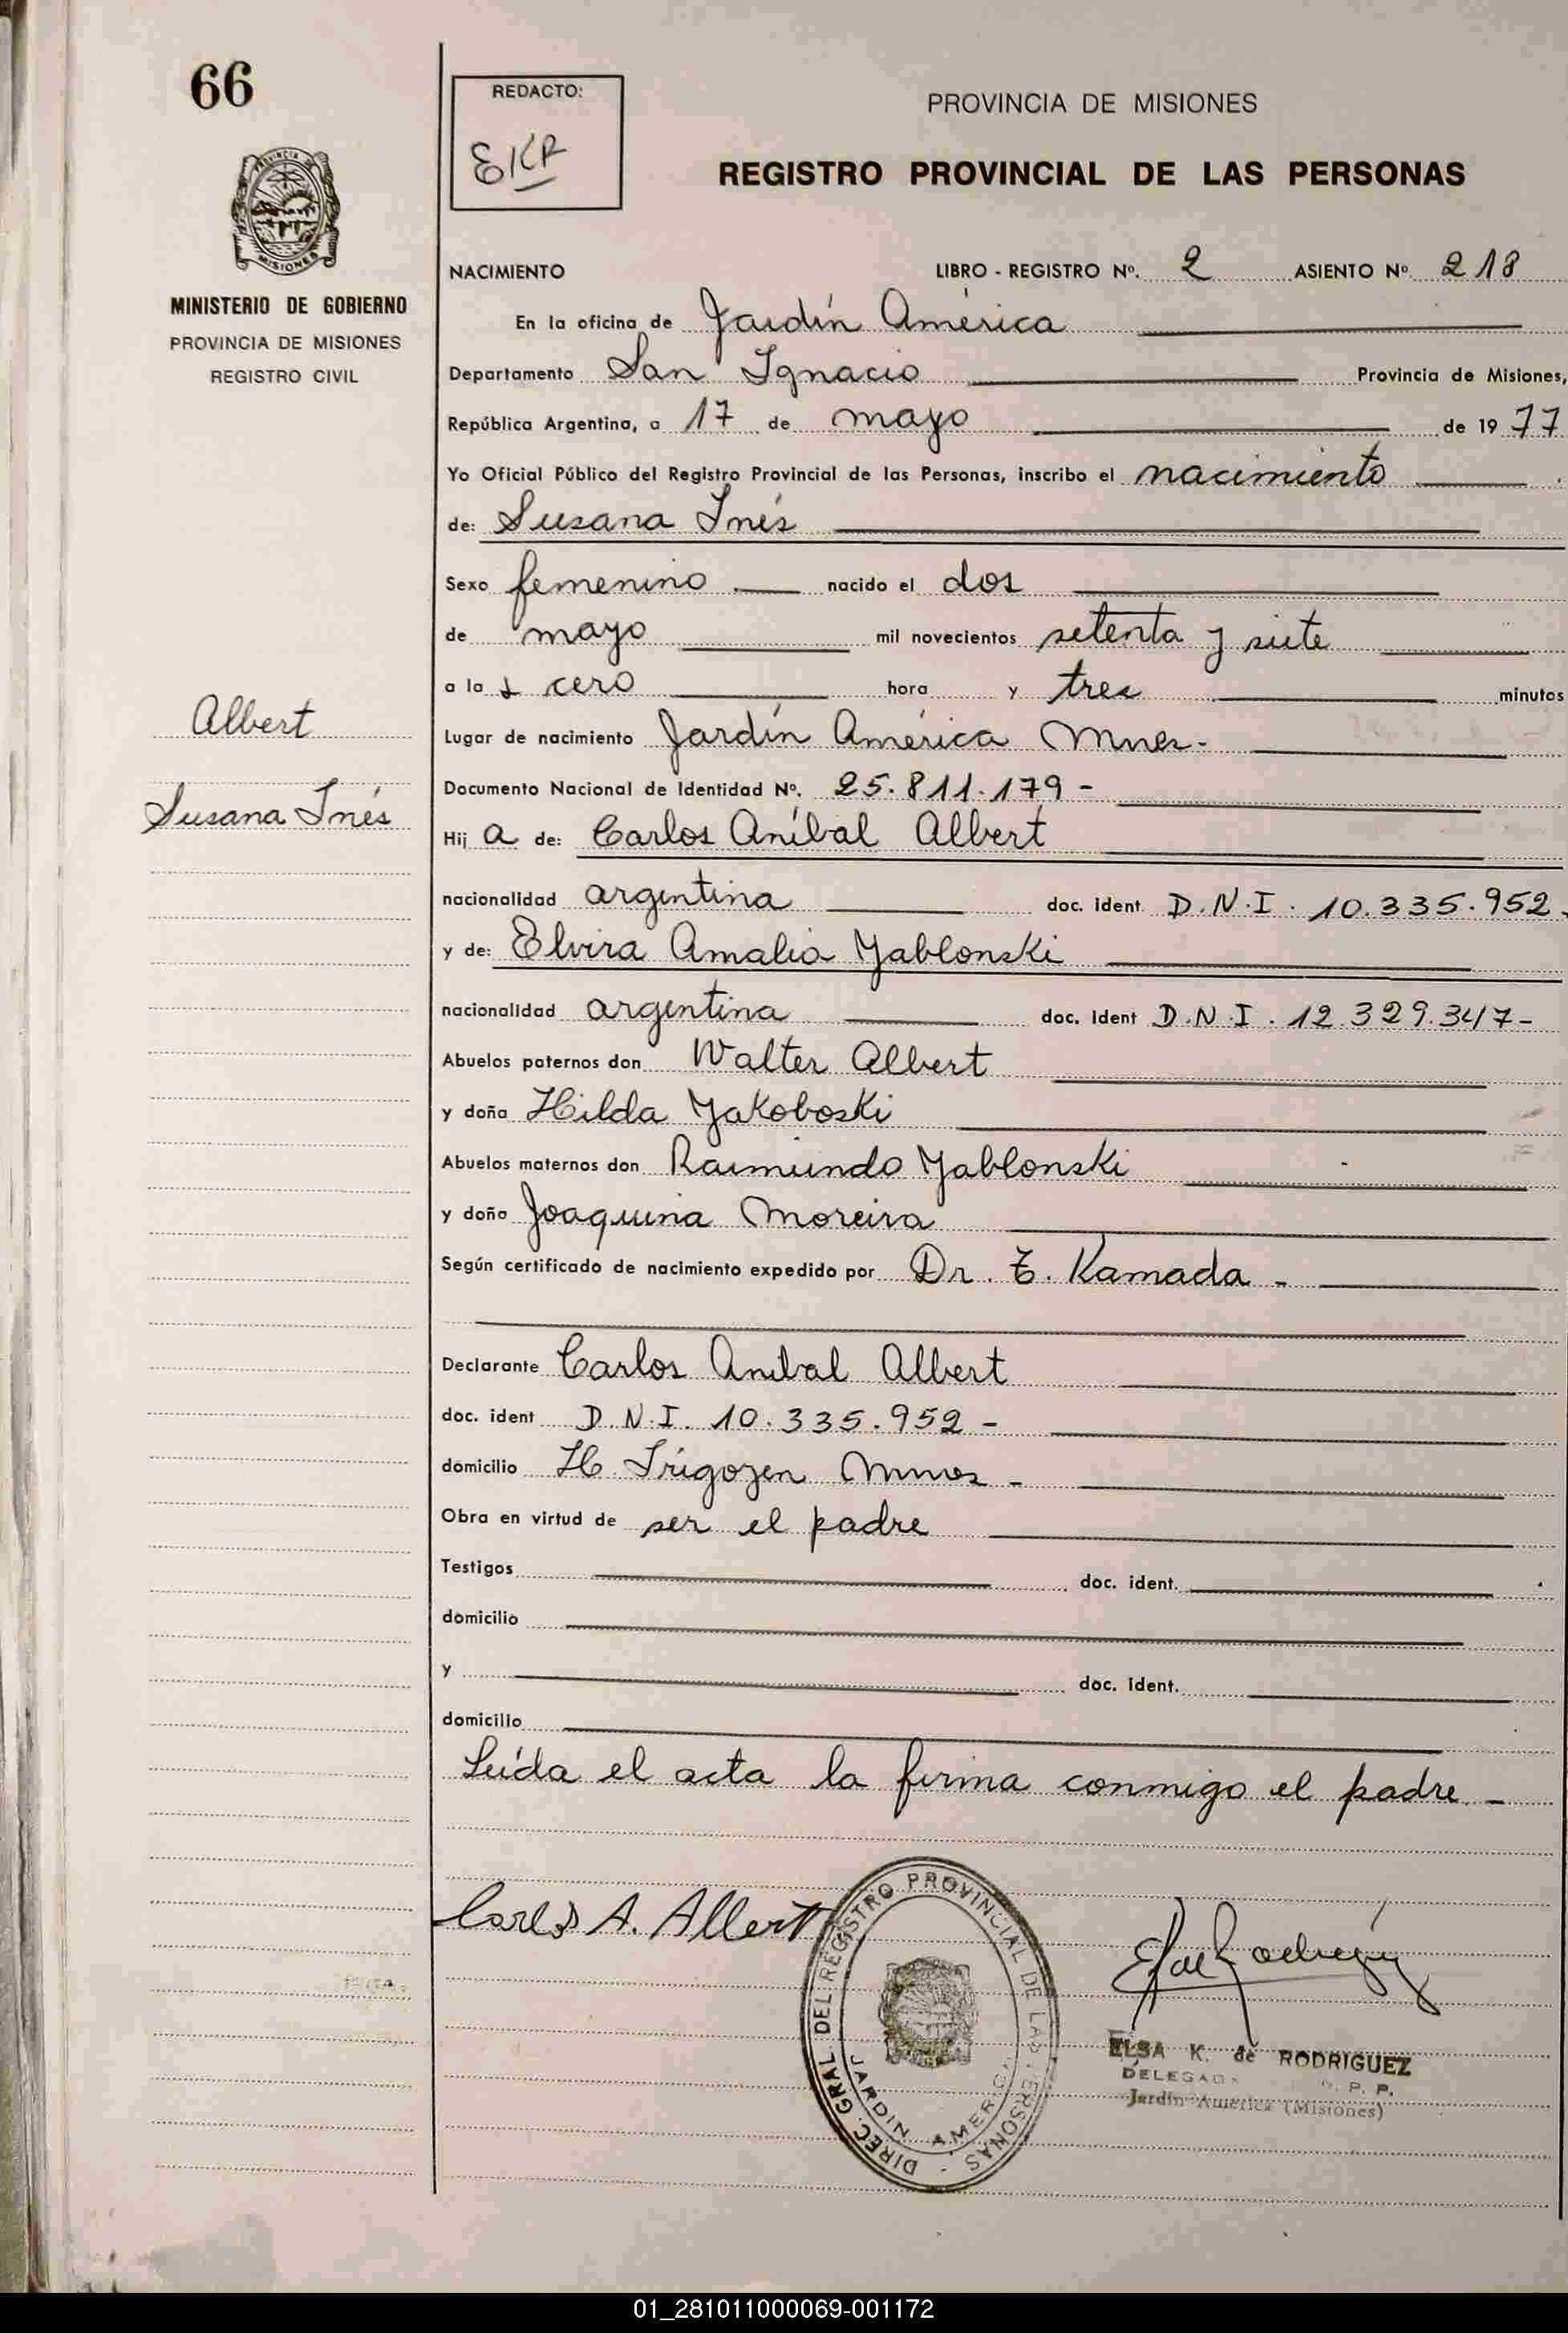 66
REDACTO:
EKR
PROVINCIA DE MISIONES
REGISTRO PROVINCIAL DE LAS PERSONAS
PROVINCIA DE
MISIONES
MINISTERIO DE GOBIERNO
PROVINCIA DE MISIONES
REGISTRO CIVIL
NACIMIENTO LIBRO - REGISTRO Nº. 2 ASIENTO Nº 218
En la oficina de Jardín América
Departamento San Ignacio Provincia de Misiones,
República Argentina, a 17 de mayo de 1977
Yo Oficial Público del Registro Provincial de las Personas, inscribo el nacimiento
de: Susana Inés
Sexo femenino nacido el dos
de mayo mil novecientos setenta y siete
a la s cero hora y tres minutos
Albert
Lugar de nacimiento Jardín América Mnes-
Documento Nacional de Identidad Nº. 25.811.179-
Susana Inés
Hij a de: Carlos Aníbal Albert
nacionalidad argentina doc. ident D.N.I. 10.335.952-
y de: Elvira Amalia Yablonski
nacionalidad argentina doc. ident D.N.I. 12.329.347-
Abuelos paternos don Walter Albert
y doña Hilda Yakoboski
Abuelos maternos don Raimundo Yablonski
y doña Joaquina Moreira
Según certificado de nacimiento expedido por Dr. T. Kamada -
Declarante Carlos Anibal Albert
doc. ident D.N.I. 10.335.952-
domicilio H. Irigoyen Mnes -
Obra en virtud de ser el padre
Testigos doc. ident.
domicilio
y doc. ident.
domicilio
Leída el acta la firma conmigo el padre. -
Carlos A. Albert
DIREC. GRAL DEL REGISTRO PROVINCIAL DE LAS PERSONAS -
JARDIN AMERICA
ELSA K. de RODRIGUEZ
P. P.
Jardín América (Misiones)
01_281011000069-001172